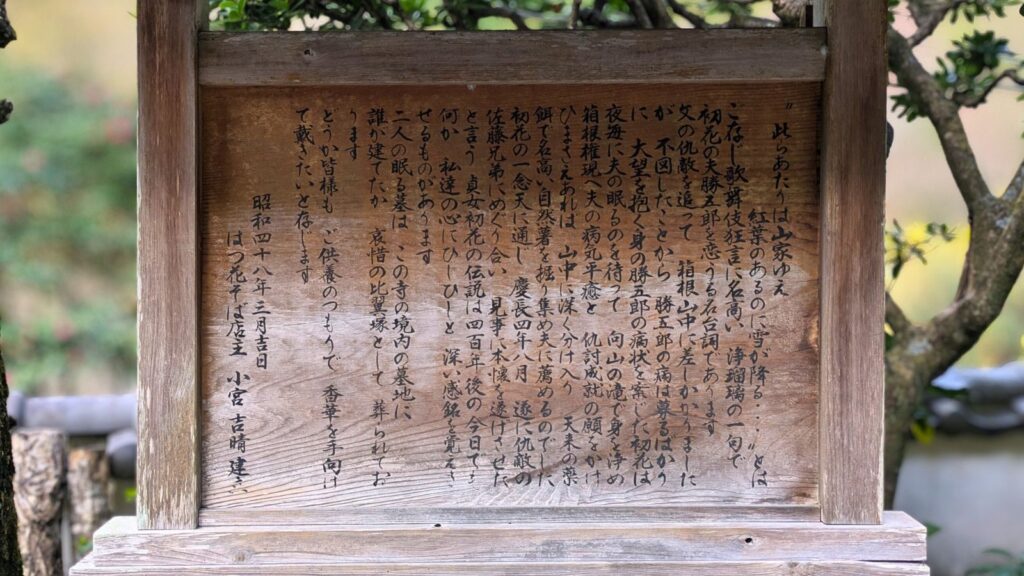 〝此らあたりは山家ゆえ
紅葉のあるのに雪が降る・・・〟とは
ご存じ歌舞伎狂言に名高い 浄瑠璃の一句で
初花の夫勝五郎を恋うる名台詞であります
父の仇敵を追って 箱根山中に差しかかりました
が 不図したことから 勝五郎の病は募るばかり
に 大望を抱く身の勝五郎の病状を案じた初花は
夜毎に夫の眠るのを待って 向山の滝で身を浄め
箱根権現へ夫の病気平癒と 仇討成就の願をかけ
ひまさえあれば 山中に深く分け入り 天来の薬
餌で名高い自然薯を掘り集め夫に薦めるのでした
初花の一念天に通じ 慶長四年八月 遂に仇敵の
佐藤兄弟にめぐり合い 見事に本懐を遂げさせた
と言う 貞女初花の伝説は四百年後の今日でも
何か 私達の心にひしひしと 深い感銘を覚えさ
せるものがあります
二人の眠る墓は この寺の境内の墓地に
誰が建てたか 哀惜の比翼塚として 葬られてお
ります
どうか皆様も ご供養のつもりで 香華を手向け
て戴きたいと存じます
昭和四十八年三月吉日
はつ花そば店主 小宮吉晴建之